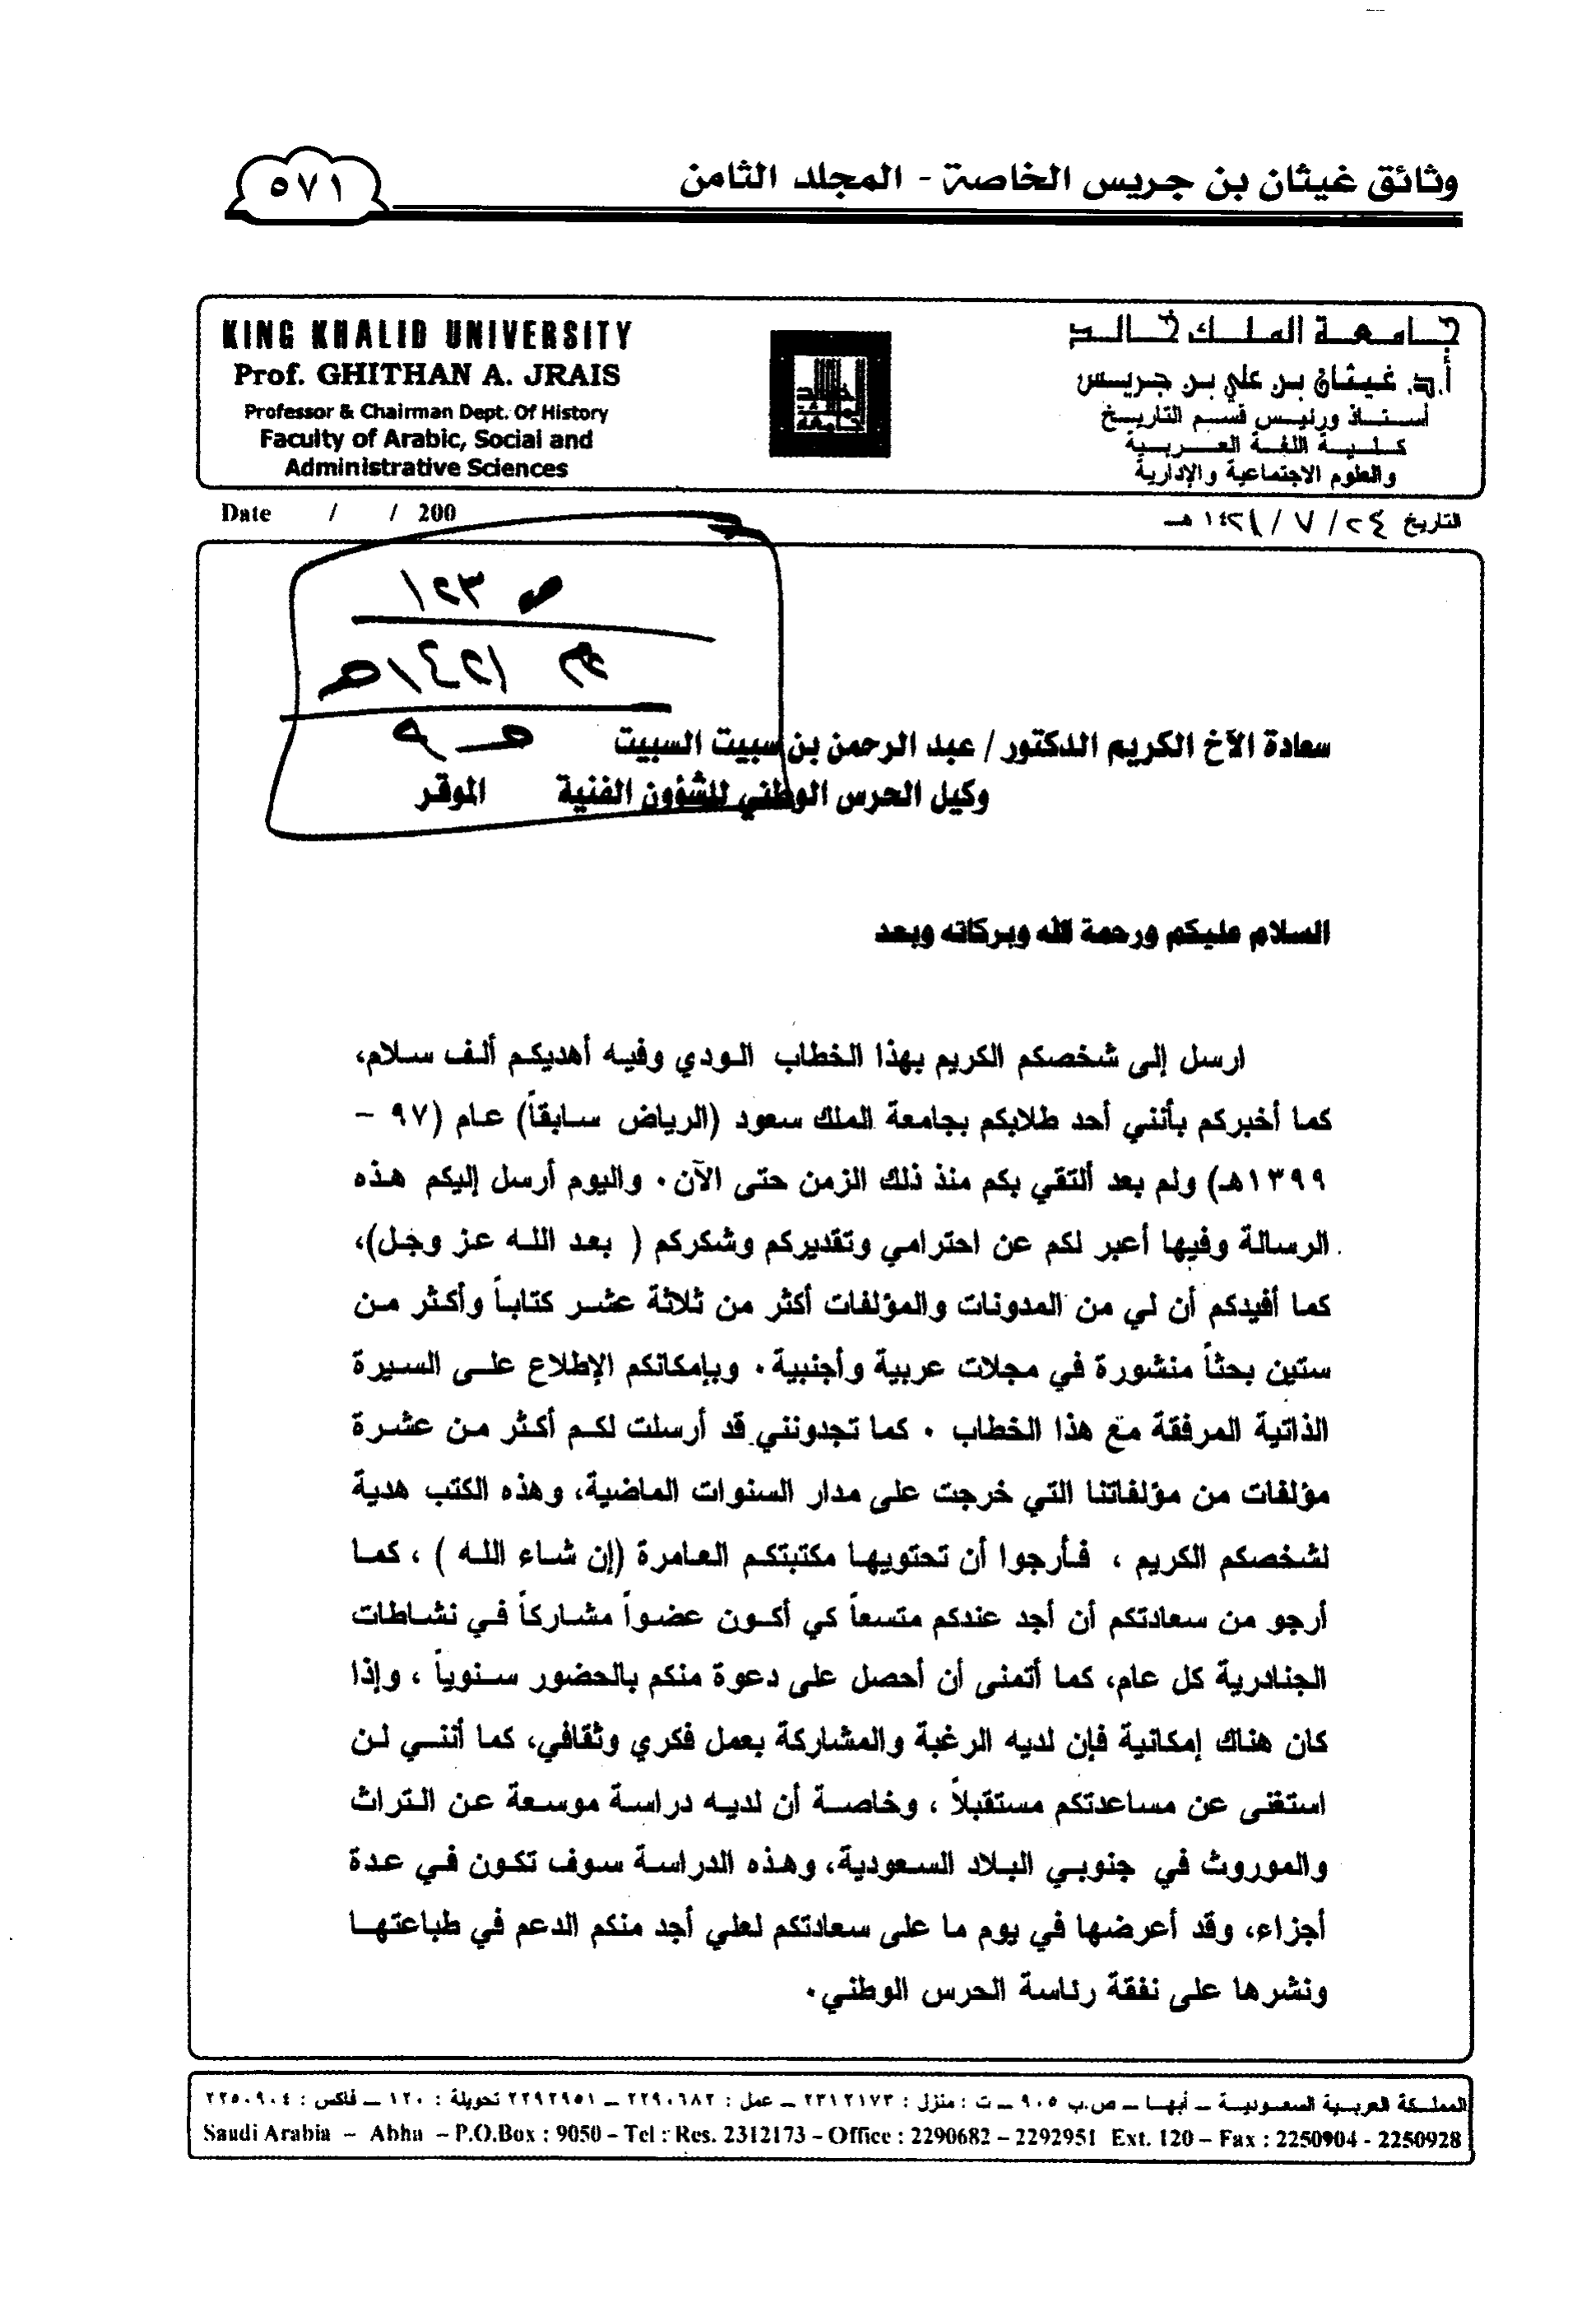 وثائق غيثان بن جريس الخاصة - المجلد الثامن
٥٧١
KING KHALID UNIVERSITY
Prof. GHITHAN A. JRAIS
Professor & Chairman Dept. Of History
Faculty of Arabic, Social and
Administrative Sciences
جامعة الملك خالد
أ.د. غيثان بن علي بن جريس
أستاذ ورئيس قسم التاريخ
كلية اللغة العربية
والعلوم الاجتماعية والإدارية
Date / / 200
التاريخ ٢٤ / ٧ / ١٤٢١ هـ
ص ١٢٣
١٤٢١هـ
سعادة الأخ الكريم الدكتور / عبد الرحمن بن سبيت السبيت
وكيل الحرس الوطني للشؤون الفنية الموقر
السلام عليكم ورحمة الله وبركاته وبعد
ارسل إلى شخصكم الكريم بهذا الخطاب الودي وفيه أهديكم ألف سلام،
كما أخبركم بأنني أحد طلابكم بجامعة الملك سعود (الرياض سابقاً) عام (٩٧ –
١٣٩٩هـ) ولم بعد ألتقي بكم منذ ذلك الزمن حتى الآن. واليوم أرسل إليكم هذه
الرسالة وفيها أعبر لكم عن احترامي وتقديركم وشكركم ( بعد الله عز وجل)،
كما أفيدكم أن لي من المدونات والمؤلفات أكثر من ثلاثة عشر كتاباً وأكثر من
ستين بحثاً منشورة في مجلات عربية وأجنبية. وبإمكانكم الإطلاع على السيرة
الذاتية المرفقة مع هذا الخطاب . كما تجدونني قد أرسلت لكم أكثر من عشرة
مؤلفات من مؤلفاتنا التي خرجت على مدار السنوات الماضية، وهذه الكتب هدية
لشخصكم الكريم ، فأرجوا أن تحتويها مكتبتكم العامرة (إن شاء الله ) ، كما
أرجو من سعادتكم أن أجد عندكم متسعاً كي أكون عضواً مشاركاً في نشاطات
الجنادرية كل عام، كما أتمنى أن أحصل على دعوة منكم بالحضور سنوياً ، وإذا
كان هناك إمكانية فإن لديه الرغبة والمشاركة بعمل فكري وثقافي، كما أنني لن
استغنى عن مساعدتكم مستقبلاً ، وخاصة أن لديه دراسة موسعة عن التراث
والموروث في جنوبي البلاد السعودية، وهذه الدراسة سوف تكون في عدة
أجزاء، وقد أعرضها في يوم ما على سعادتكم لعلي أجد منكم الدعم في طباعتها
ونشرها على نفقة رئاسة الحرس الوطني.
المملكة العربية السعودية – أبها – ص.ب ٩٠٥ – ت : منزل : ٢٣١٢١٧٣ – عمل : ٢٢٩٠٦٨٢ – ٢٢٩٢٩٥١ تحويلة : ١٢٠ – فاكس : ٢٢٥٠٩٠٤
Saudi Arabia – Abha – P.O.Box : 9050 – Tel : Res. 2312173 – Office : 2290682 – 2292951 Ext. 120 – Fax : 2250904 - 2250928